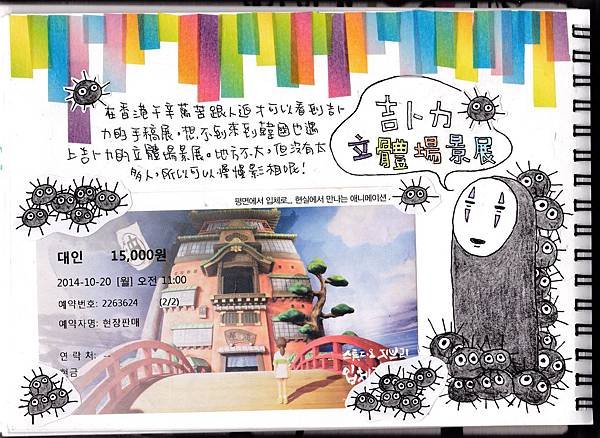 在香港千辛萬苦跟人迫才可以看到吉卜
力的手稿展，想不到來到韓國也遇
上吉卜力的立體場景展。地方不大，但沒有太
多人，所以可以慢慢影相呢！
吉卜力
立體場景展
평면에서 입체로,, 현실에서 만나는 애니메이션
대인 15,000원
2014-10-20 [월] 오전 11:00
예약번호: 2263624 (2/2)
예약자명: 현장판매
연 락 처: --
현금
스튜디오 지브리
입체